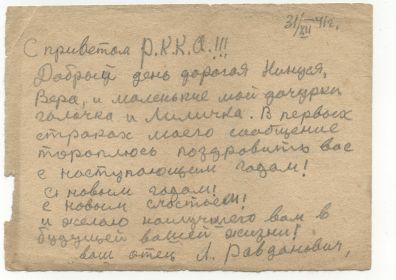 31/XII 41г.
С приветом Р.К.К.А.!!!
Добрый день дорогая Нинуся,
Вера, и маленькие мои дочурки
галочка и Лиличка. В первых
страках моего саобщение
тороплюсь поздравить вас
с наступающим годам!
с новым годам!
с новым счастьем!
и желаю наилучшего вам в
будущей вашей жизни!
ваш отец Л. Равданович,